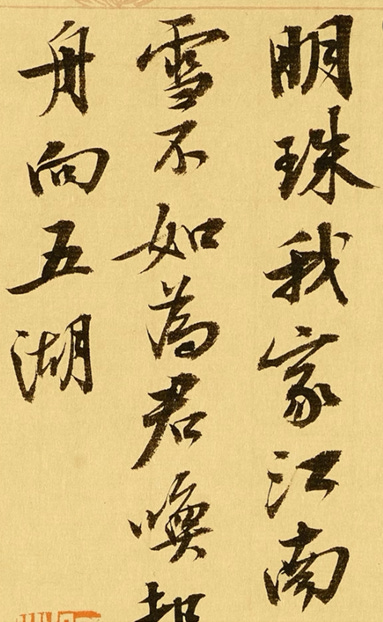 明珠我家江南
雪不如為君喚
舟向五湖